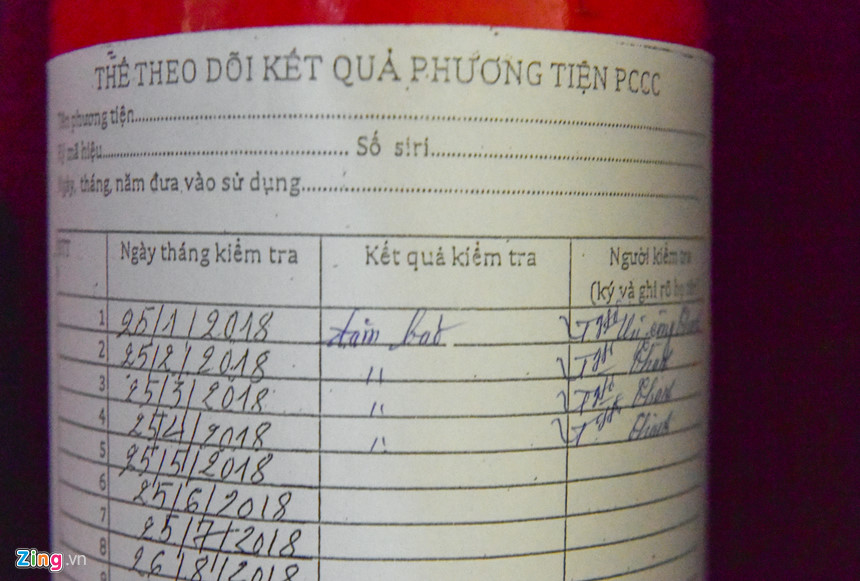 THẺ THEO DÕI KẾT QUẢ PHƯƠNG TIỆN PCCC
Tên phương tiện
Ký mã hiệu Số siri
Ngày, tháng, năm đưa vào sử dụng
STT Ngày tháng kiểm tra Kết quả kiểm tra Người kiểm tra
(ký và ghi rõ họ tên)
1 25/1/2018 đảm bảo
2 25/2/2018 "
3 25/3/2018 "
4 25/4/2018 "
5 25/5/2018
6 25/6/2018
7 25/7/2018
8 26/8/2018
Zing.vn